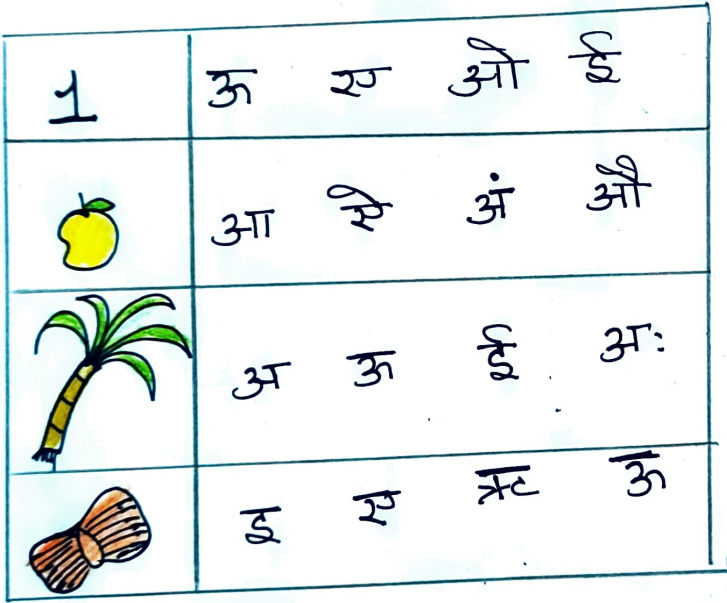 1 ऊ ए ओ ई
आ ऐ अं औ
अ ऊ ई अः
इ ए ऋ ऊ